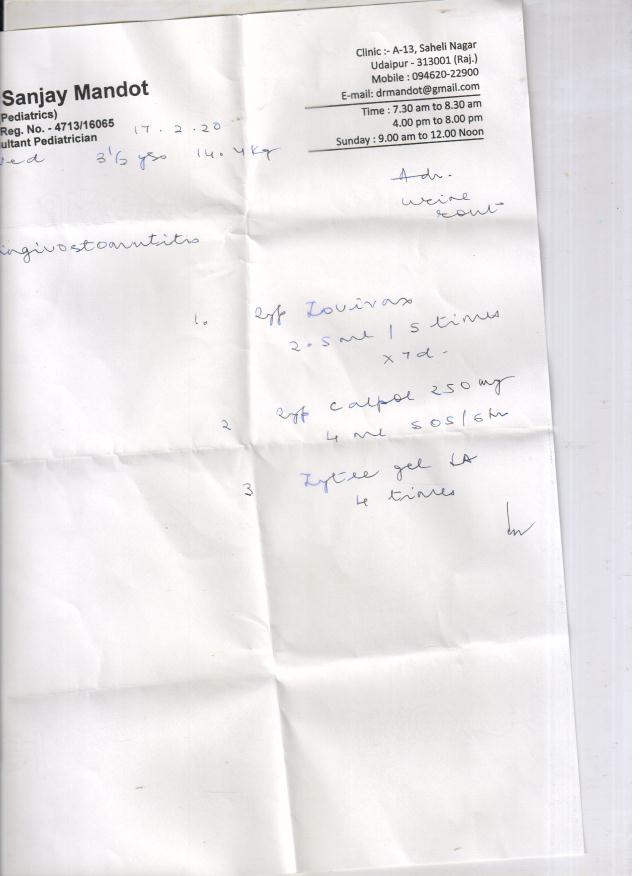 Sanjay Mandot
Pediatrics)
Reg. No. - 4713/16065
ultant Pediatrician
Clinic :- A-13, Saheli Nagar
Udaipur - 313001 (Raj.)
Mobile : 094620-22900
E-mail: drmandot@gmail.com
Time : 7.30 am to 8.30 am
4.00 pm to 8.00 pm
Sunday : 9.00 am to 12.00 Noon
17.2.20
ved 3½ yrs 14.4 kg
Adv.
urine
rout
ingivostomatitis
1. Syp Zovirax
2.5 ml / 5 times
x 7d.
2 Syp Calpol 250 mg
4 ml SOS/6hr
3 Zytee gel LA
4 times